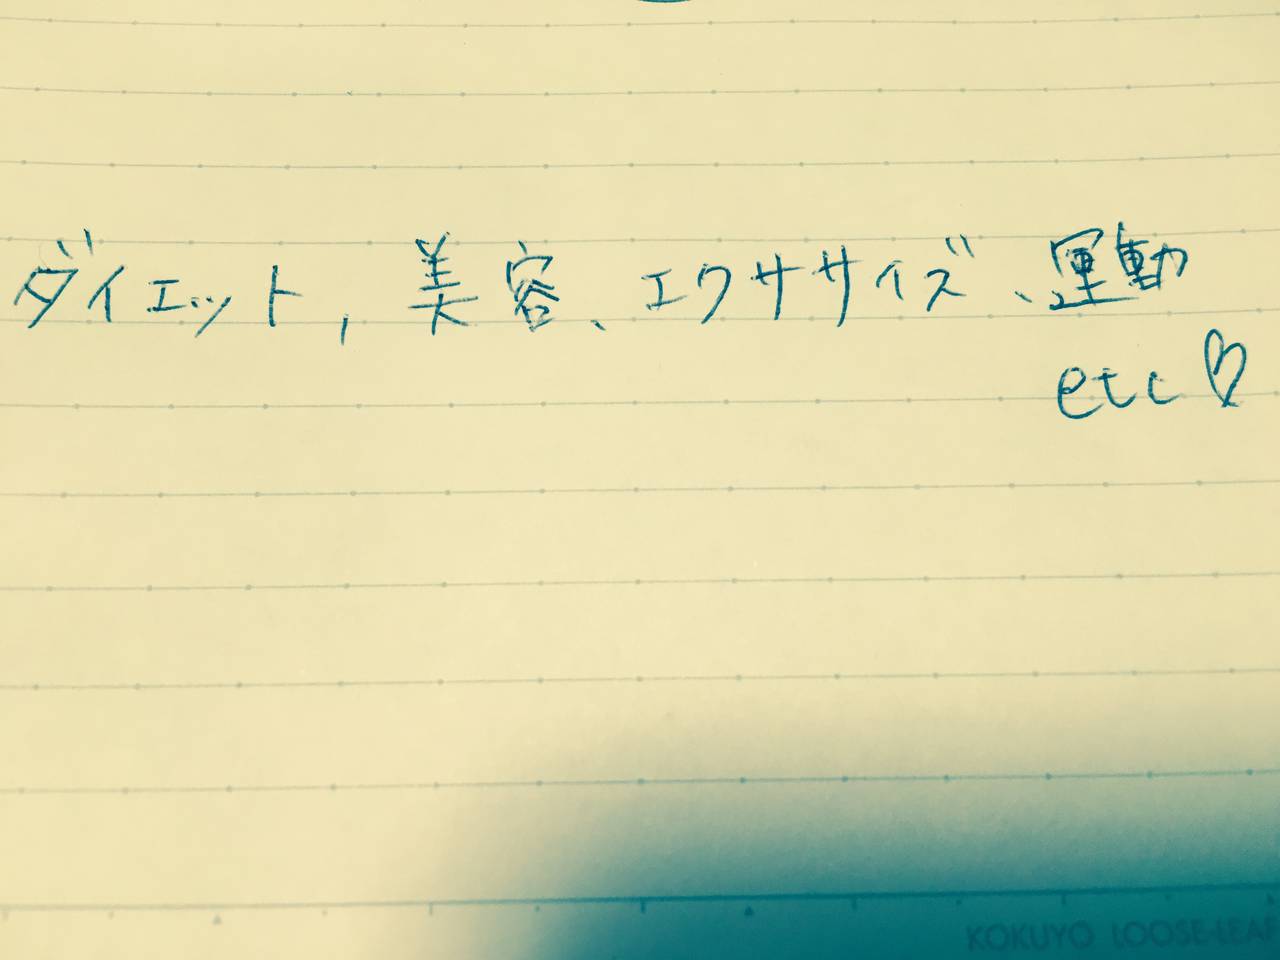 ダイエット, 美容、エクササイズ、運動
etc♡
KOKUYO LOOSE-LEAF